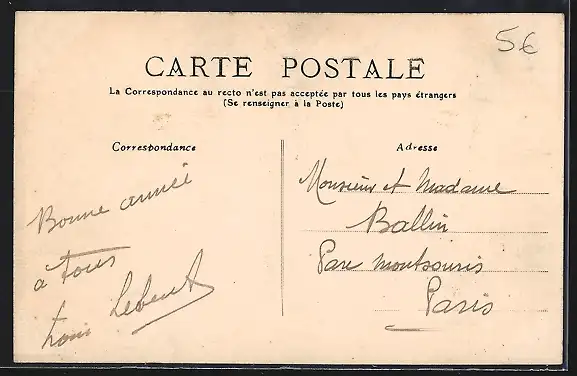 5€
CARTE POSTALE
La Correspondance au recto n'est pas acceptée par tous les pays étrangers
(Se renseigner à la Poste)
Correspondance
Adresse
Bonne année
à Tous
Monsieur et Madame
Ballin
Parc Montsouris
Paris